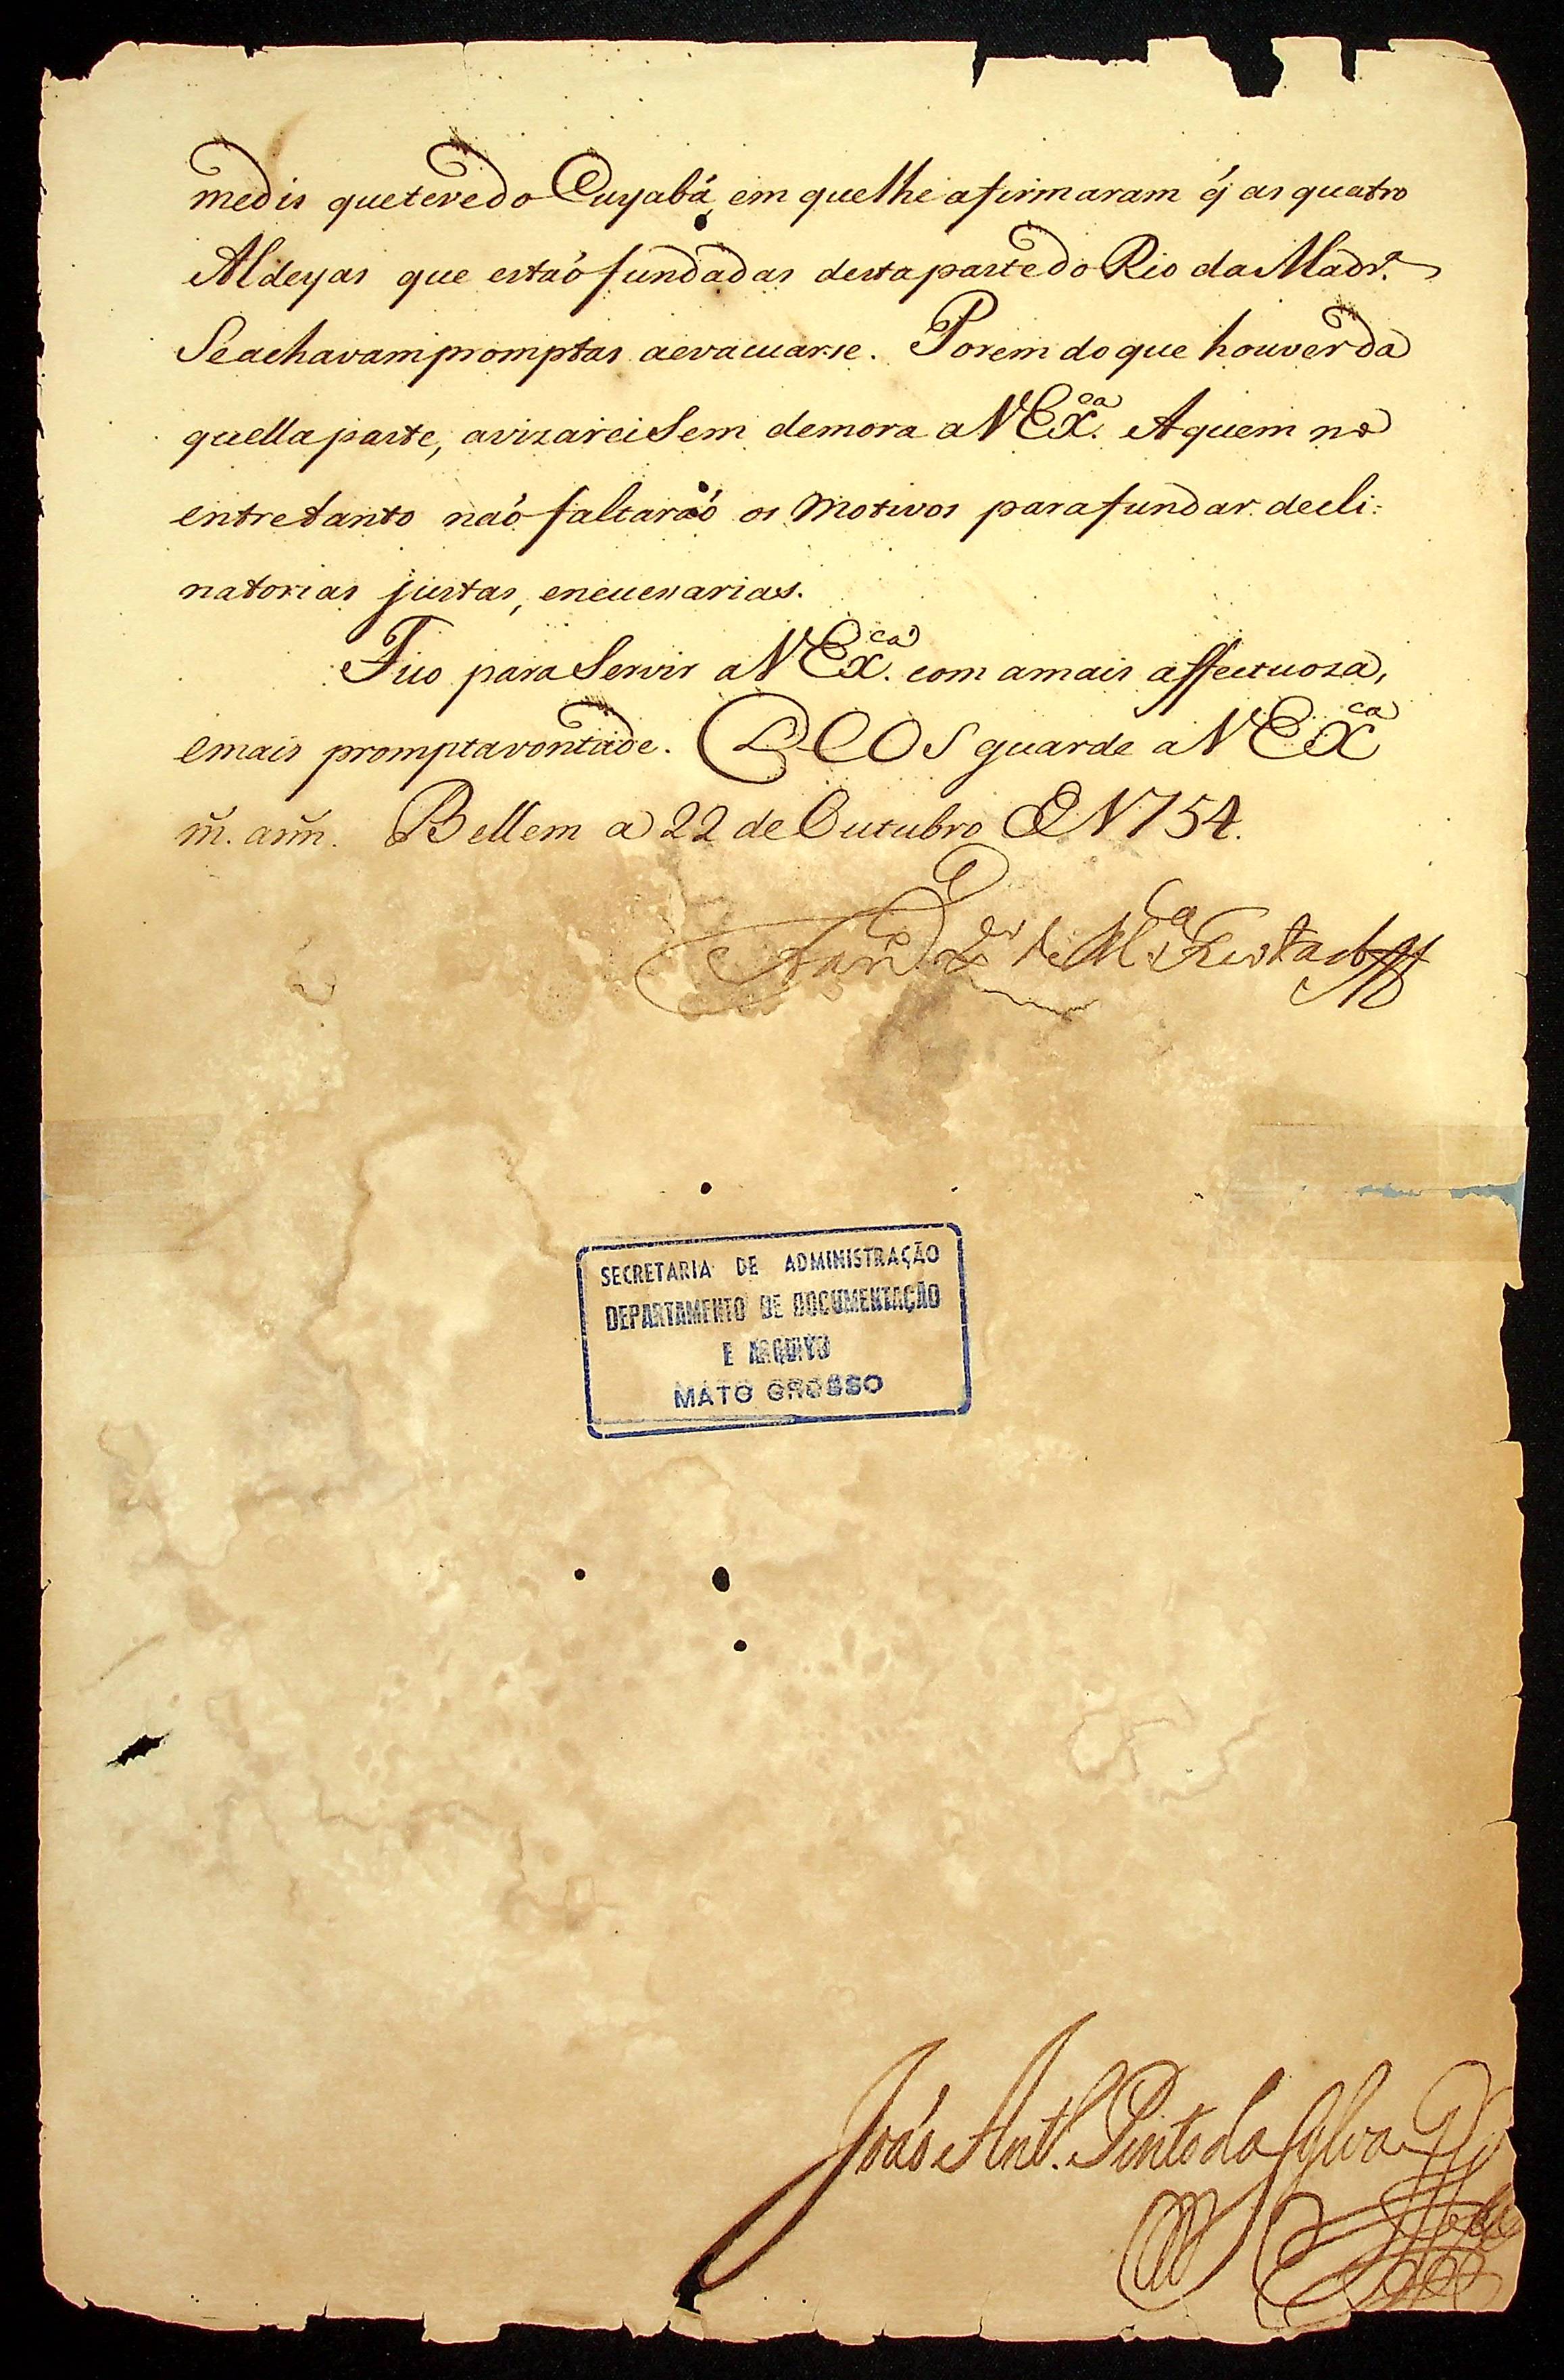 medis que teve do Cuyabá, em que lhe afirmaram q̃ as quatro
Aldeyas que estaó fundadas desta parte do Rio da Madr.ª
Se achavam promptas a evacuarse. Porem do que houver da
quella parte, avizarei Sem demora a V Exca. A quem no
entretanto naó faltaraó os motivos para fundar decli:
natorias justas, e necessarias.
Fico para Servir a V Exca. com a mais affectuoza,
e mais prompta vontade. DEOS guarde a V Exca
m̃. anñ. Bellem a 22 de Outubro DE 1754.
Fran.co X.er de M.ça Furtado
SECRETARIA DE ADMINISTRAÇÃO
DEPARTAMENTO DE DOCUMENTAÇÃO
E ARQUIVO
MATO GROSSO
Joaó Ant.o Pinto da Sylva